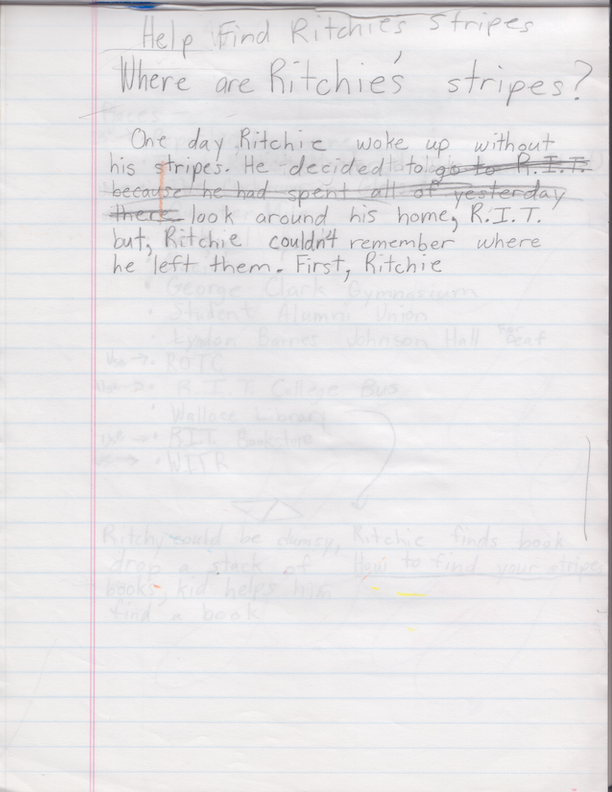 Help Find Ritchie's Stripes
Where are Ritchie's stripes?
Places
One day Ritchie woke up without
his stripes. He decided to go to R.I.T.
because he had spent all of yesterday
there look around his home, R.I.T.
but, Ritchie couldn't remember where
he left them. First, Ritchie
• George Clark Gymnasium
• Student Alumni Union
• Lyndon Baines Johnson Hall for Deaf
use → • ROTC
use → • R.I.T. College Bus
• Wallace Library
use → • RIT Bookstore
use → • WITR
Ritchy could be clumsy, Ritchie finds book
drop a stack of How to find your stripes
books, kid helps him
find a book